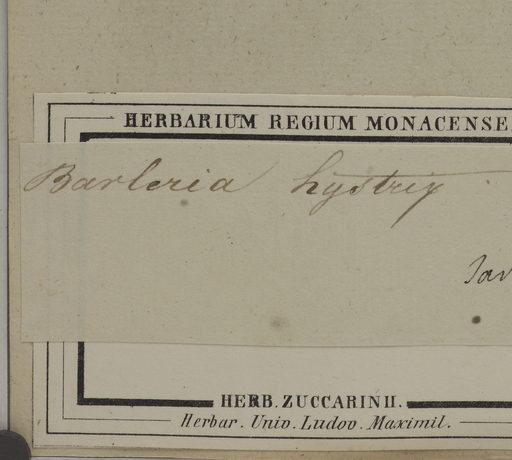 HERBARIUM REGIUM MONACENSE.
Barleria hystrix
Jav
HERB. ZUCCARINII.
Herbar. Univ. Ludov. Maximil.